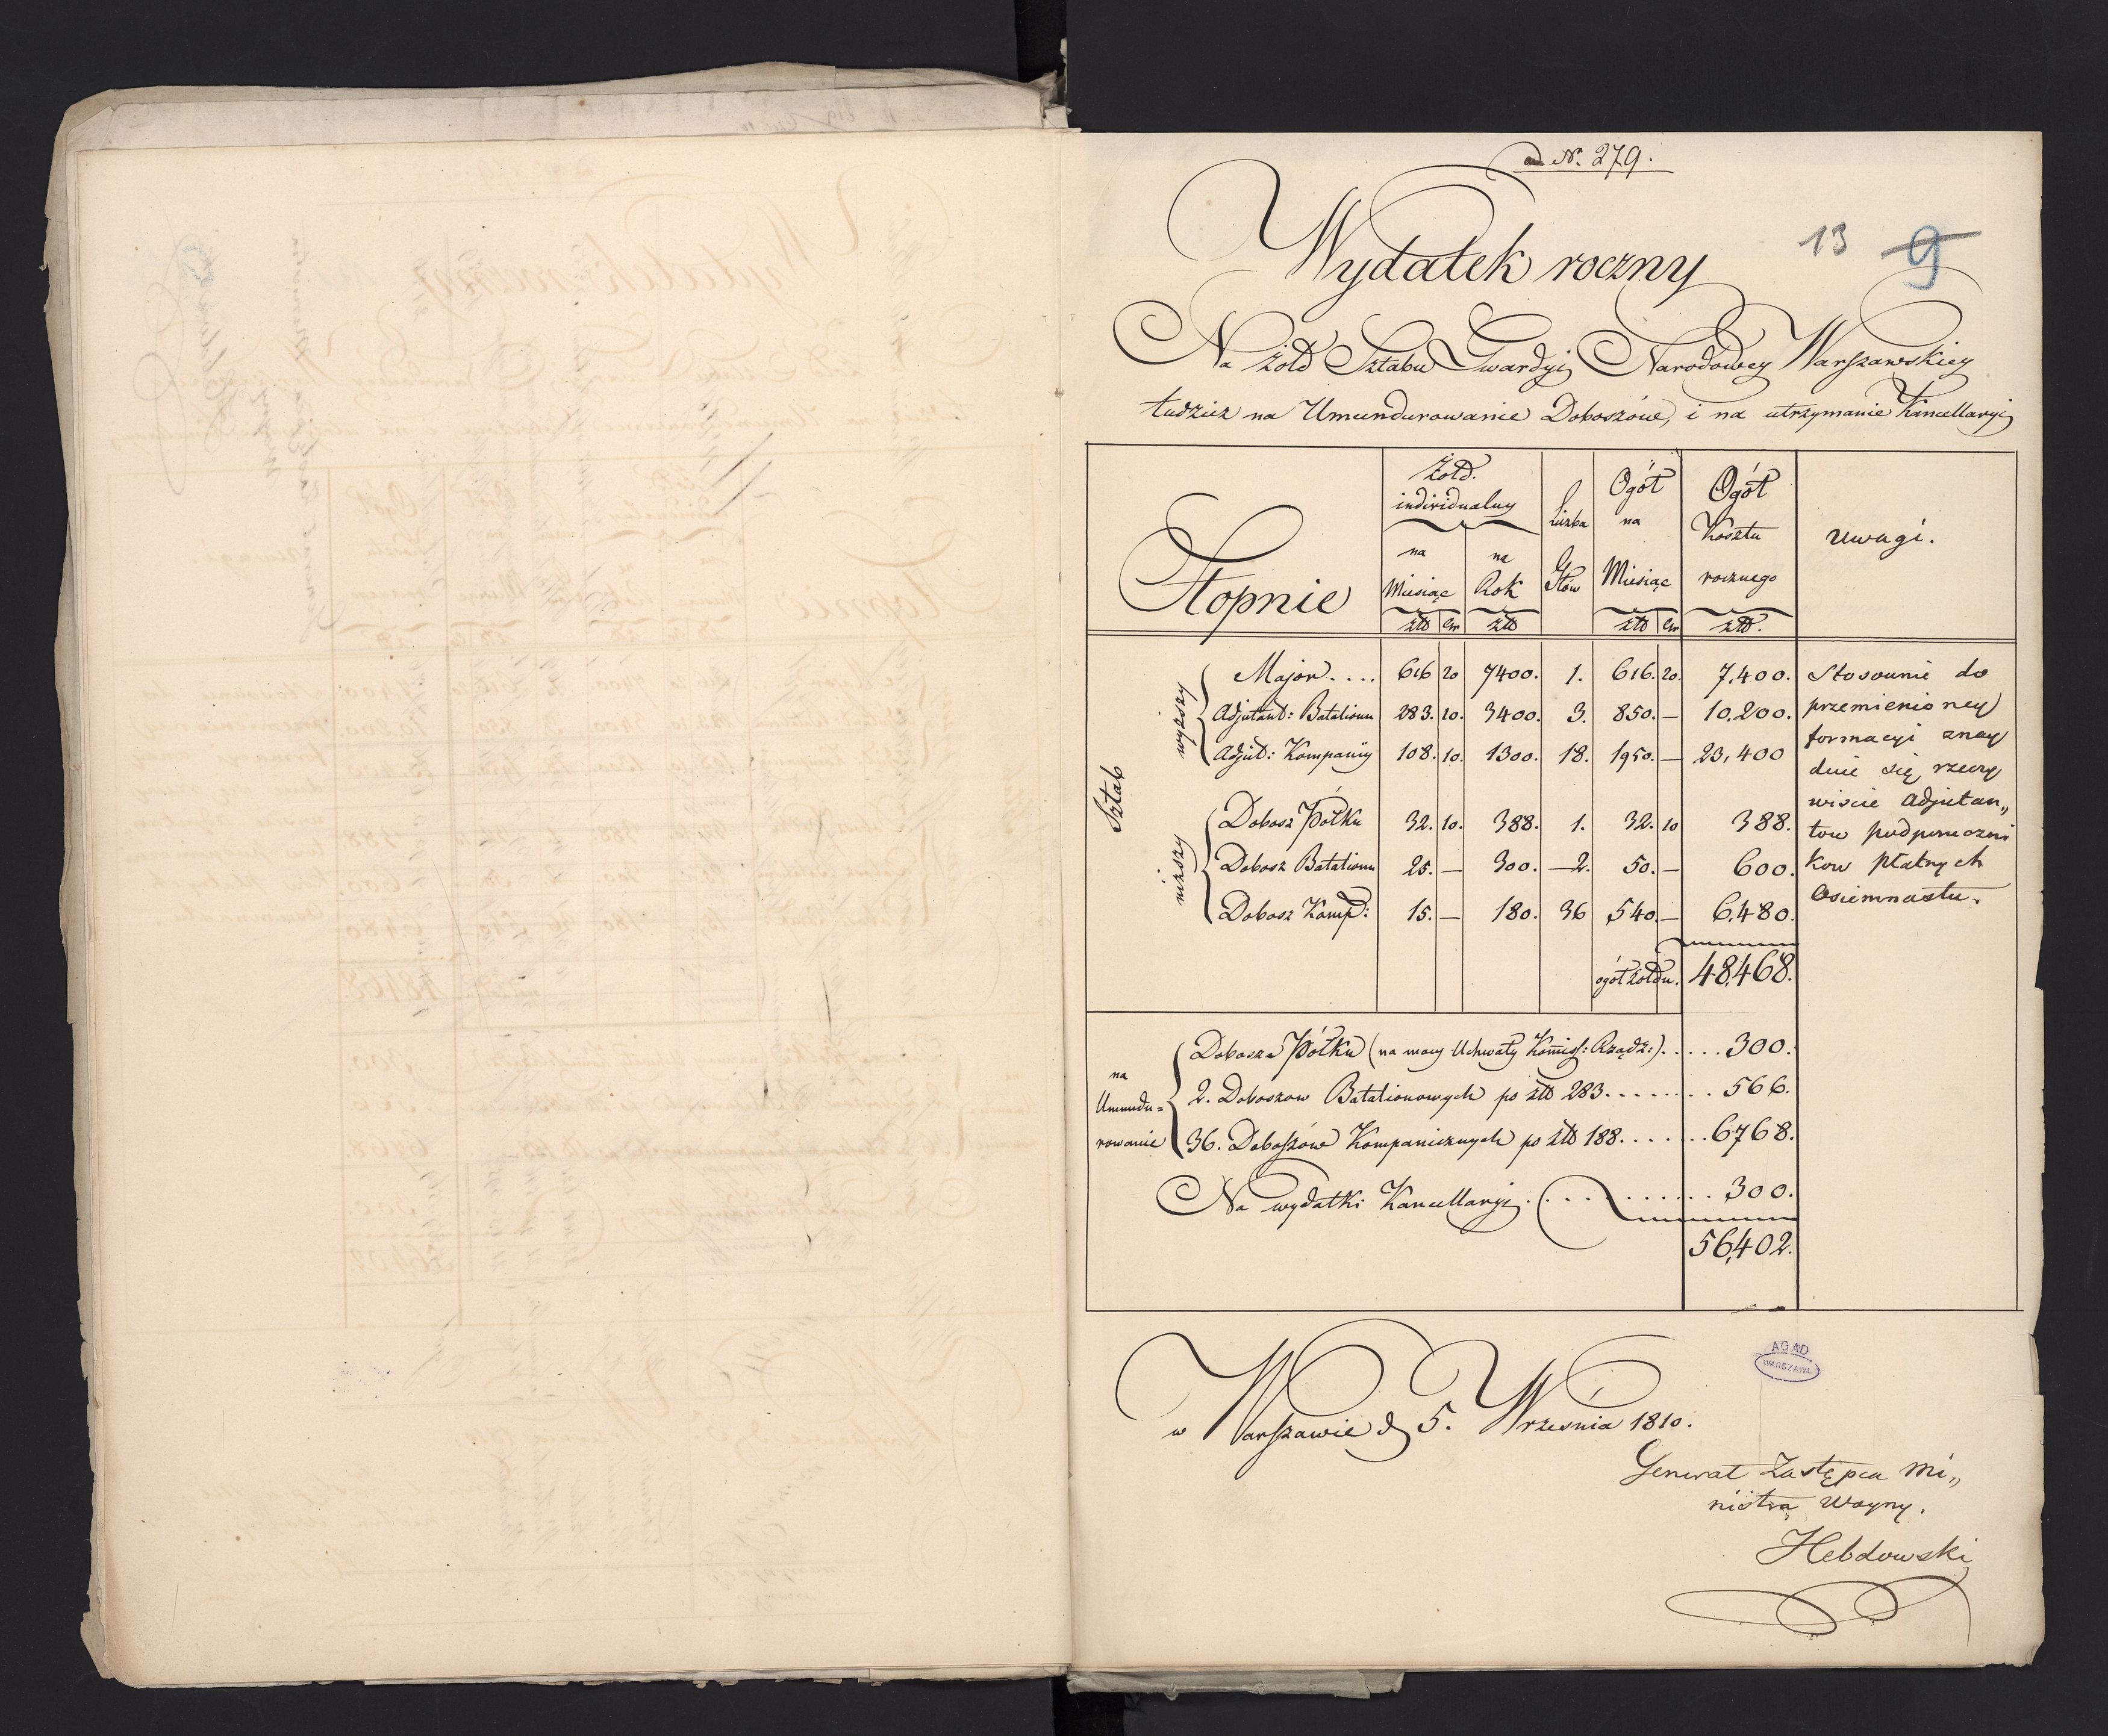 ad N. 279.
13 9
Wydatek roczny
Na żołd Sztabu Gwardyi Narodowey Warszawskiey
tudzież na Umundurowanie Doboszów, i na utrzymanie Kancellaryi
Stopnie
Żołd.
individualny
na Miesiąc
złł gr
na Rok
złł
Liczba Głów
Ogół na Miesiąc
złł gr
Ogół Kosztu rocznego
złł.
Uwagi.
Sztab
wyższy
Major.... 616 20 7400. 1. 616. 20. 7,400.
Adjutant: Batalionu 283. 10. 3400. 3. 850. — 10,200.
Adjut: Kompanij 108. 10. 1300. 18. 1950. — 23,400
niższy
Dobosz Półku 32. 10. 388. 1. 32. 10 388.
Dobosz Batalionu 25. — 300. — 2. 50. — 600.
Dobosz Komp: 15. — 180. 36 540. — 6,480.
ogół żołdu. 48,468.
Stosownie do
przemienioney
formacyi znay
duie się rzeczy
wiście Adjutan„
tow podporuczni
kow płatnych
Osiemnastu.
na
Umundu=
rowanie
Dobosza Półku (na mocy Uchwały Kommiss: Rządz:)..... 300.
2. Doboszow Batalionowych po złł 283........ 566.
36. Doboszów Kompanicznych po złł 188....... 6768.
Na wydatki Kancellaryi........... 300.
56,402.
w Warszawie d 5. Września 1810.
AGAD
WARSZAWA
Generał Zastępca Mi„
nistra Woyny.
Hebdowski